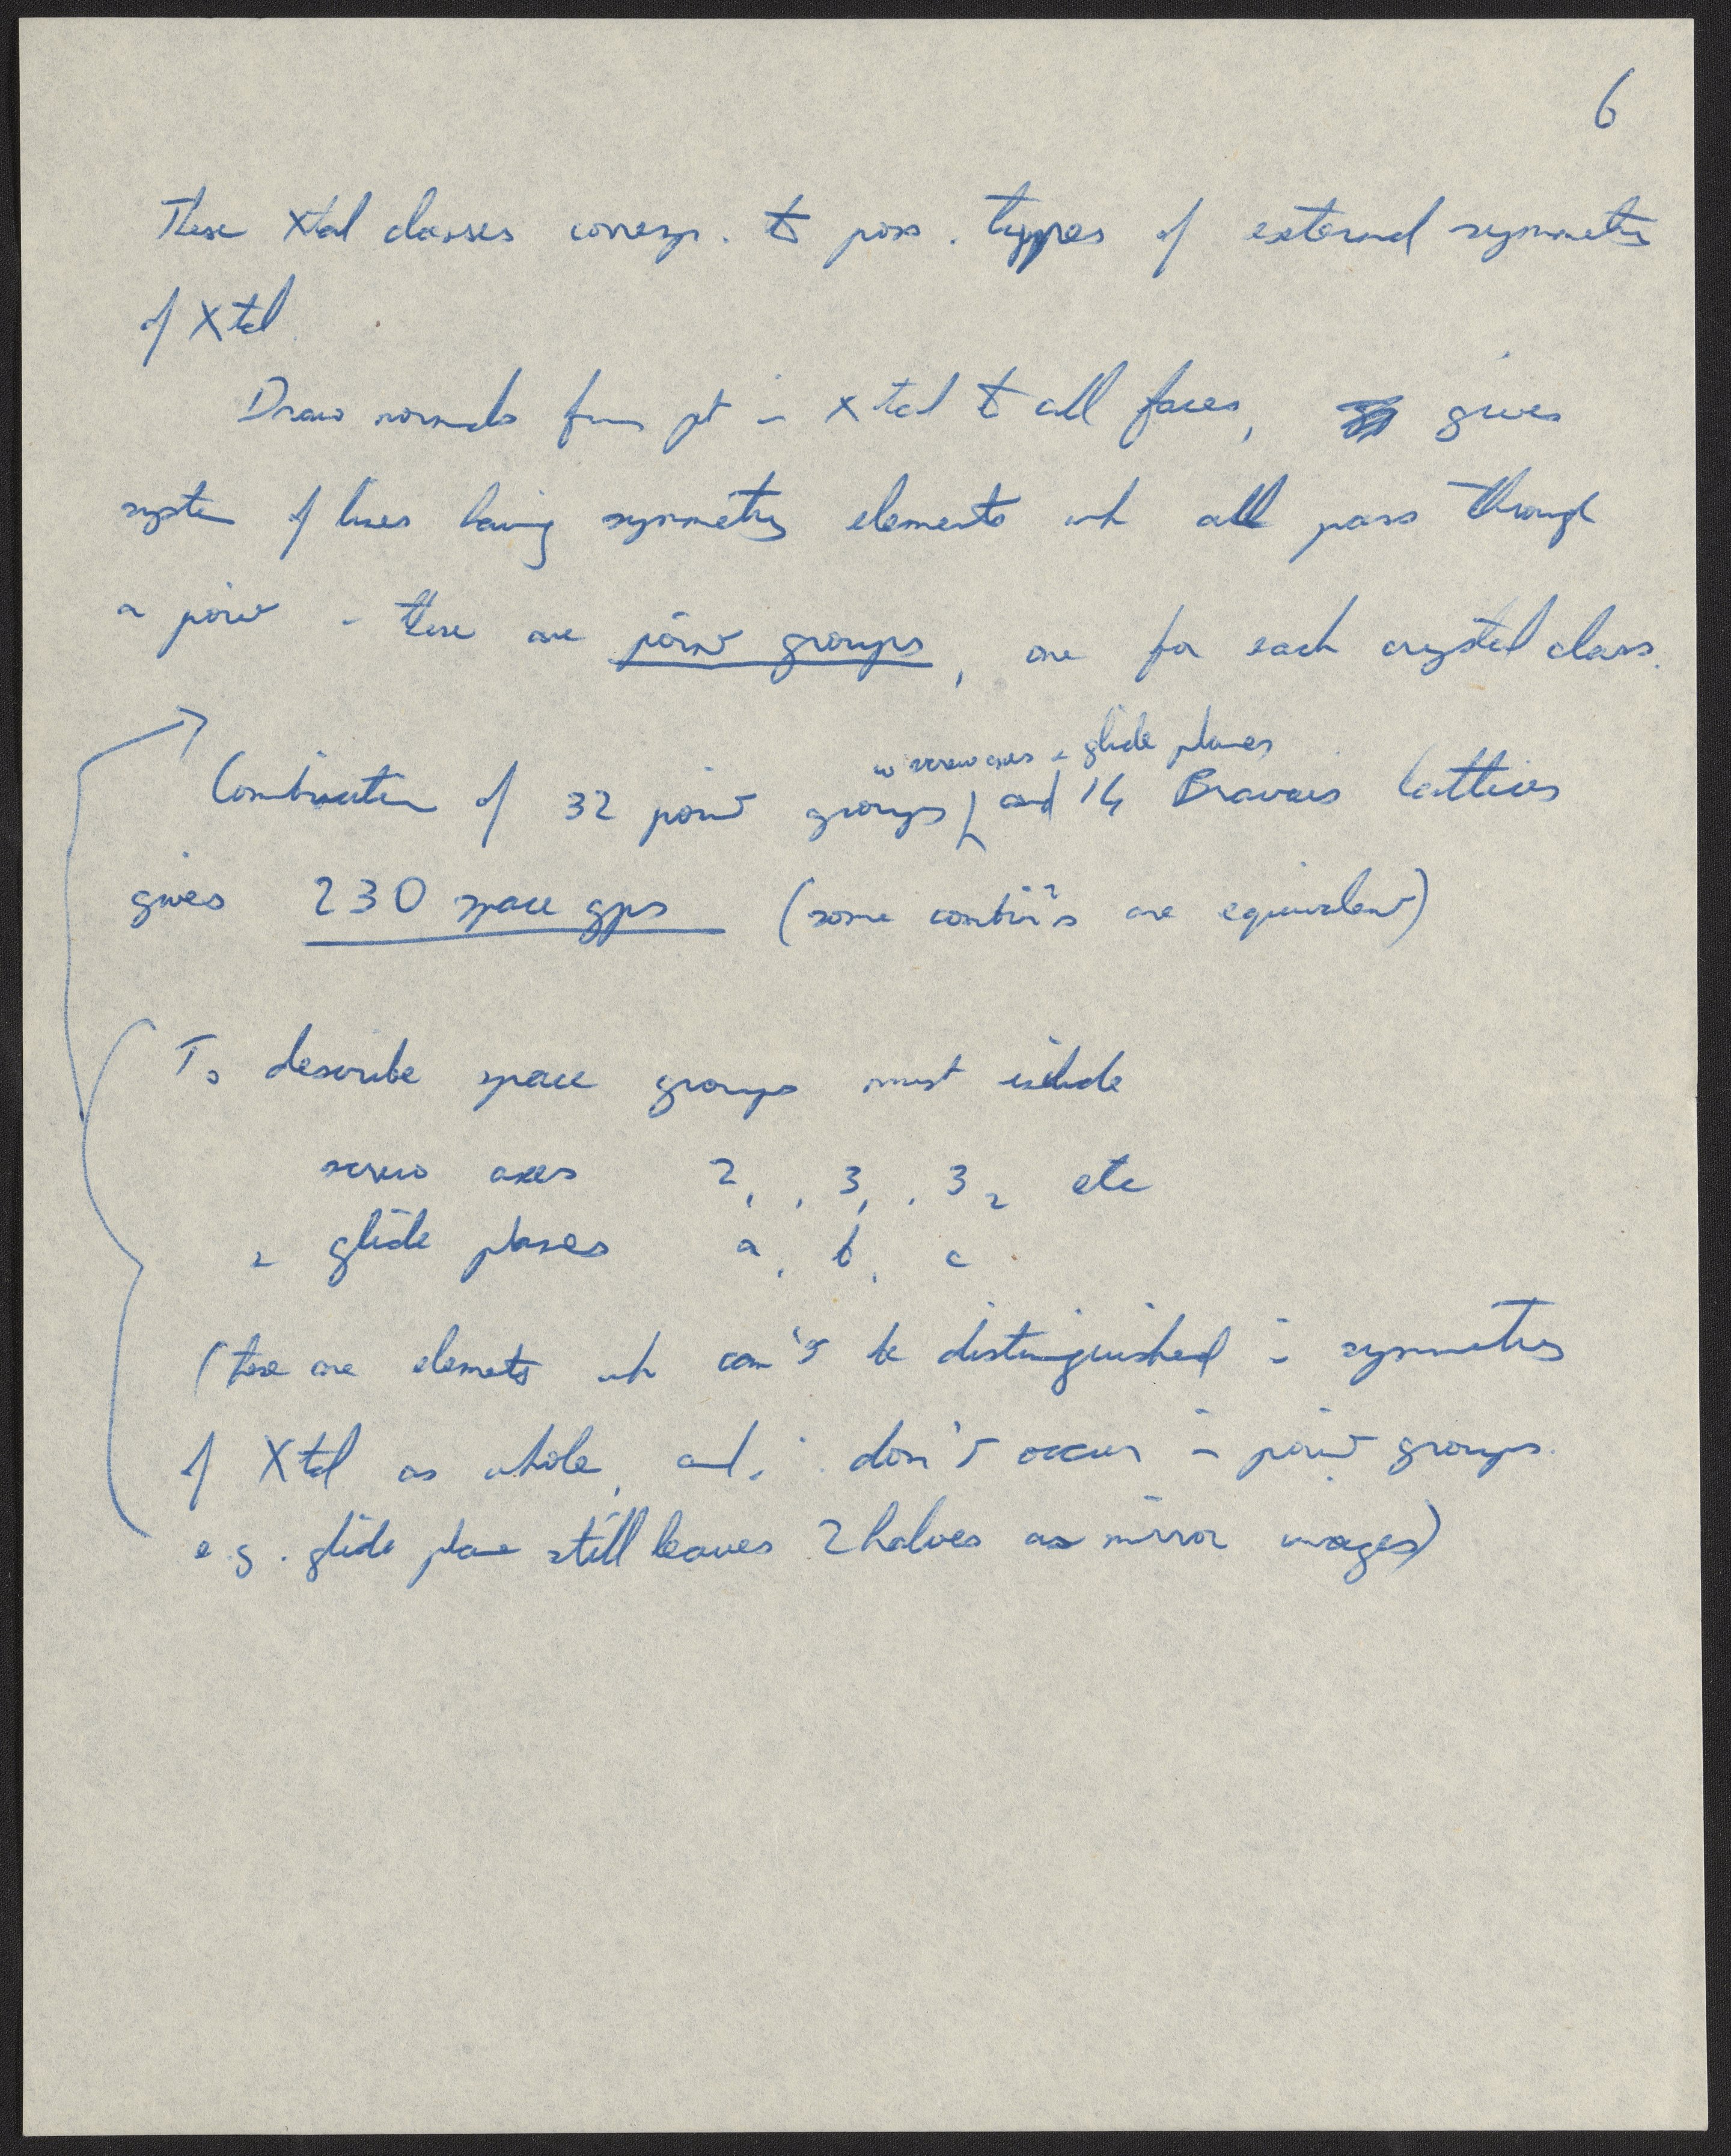 6
These Xtal classes corresp. to poss. types of external symmetry
of Xtal.
Draw normals from pt in Xtal to all faces, gives
system of lines having symmetry elements wh all pass through
a point - these are point groups, one for each crystal class.
w screw axes & glide planes
Combination of 32 point groups, and 14 Bravais lattices
gives 230 space gps (some combin's are equivalent)
To describe space groups must include
screw axes 2₁, 3₁, 3₂ etc
& glide planes a, b, c
(these are elements wh can't be distinguished in symmetry
of Xtal as whole, and ∴ don't occur in point groups.
e.g. glide plane still leaves 2 halves as mirror images)